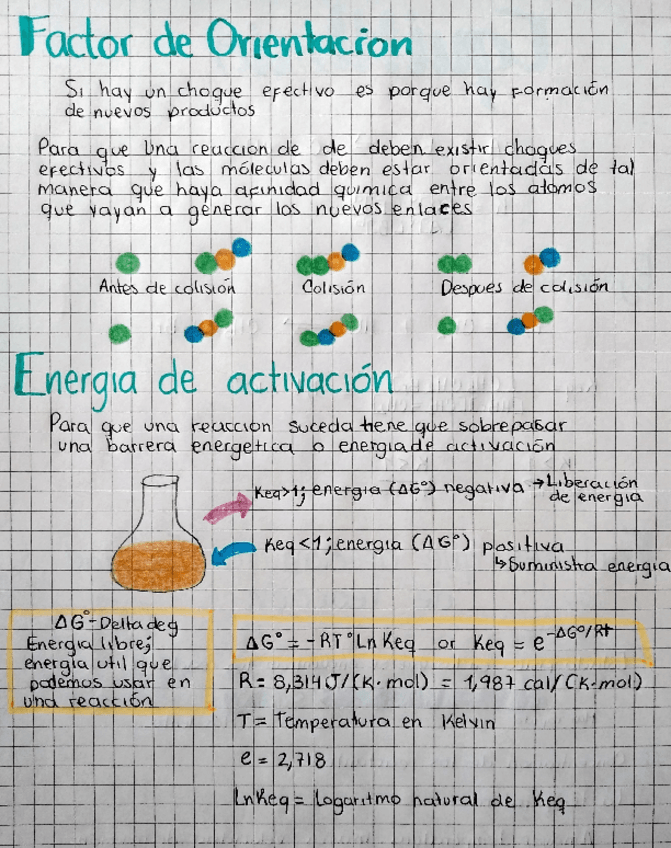 Factor de Orientacion
Si hay un choque efectivo es porque hay formación
de nuevos productos
Para que una reaccion de de deben existir choques
efectivos y las móleculas deben estar orientadas de tal
manera que haya afinidad quimica entre los atomos
que vayan a generar los nuevos enlaces
Antes de colisión Colisión Despues de colisión
Energia de activación
Para que una reaccion suceda tiene que sobrepasar
una barrera energetica o energia de activación
Keq>1; energia (ΔG°) negativa → Liberación
de energia
Keq<1; energia (ΔG°) positiva
↳ Suministra energia
ΔG° - Delta de g
Energia libre;
energia util que
podemos usar en
una reacción
ΔG° = -RT° Ln Keq or Keq = e^-ΔG°/Rt
R = 8,314 J/(K·mol) = 1,987 cal/(K·mol)
T = Temperatura en Kelvin
e = 2,718
LnKeq = Logaritmo natural de Keq